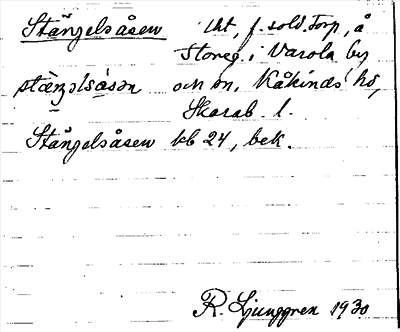 Stängelsåsen lht, f. sold. torp, å
Storeg. i Varola by
stäŋəlsåsən och sn, Kåkinds hd,
Skarab. l.
Stängelsåsen kb 24, bek.
R. Ljunggren 1930